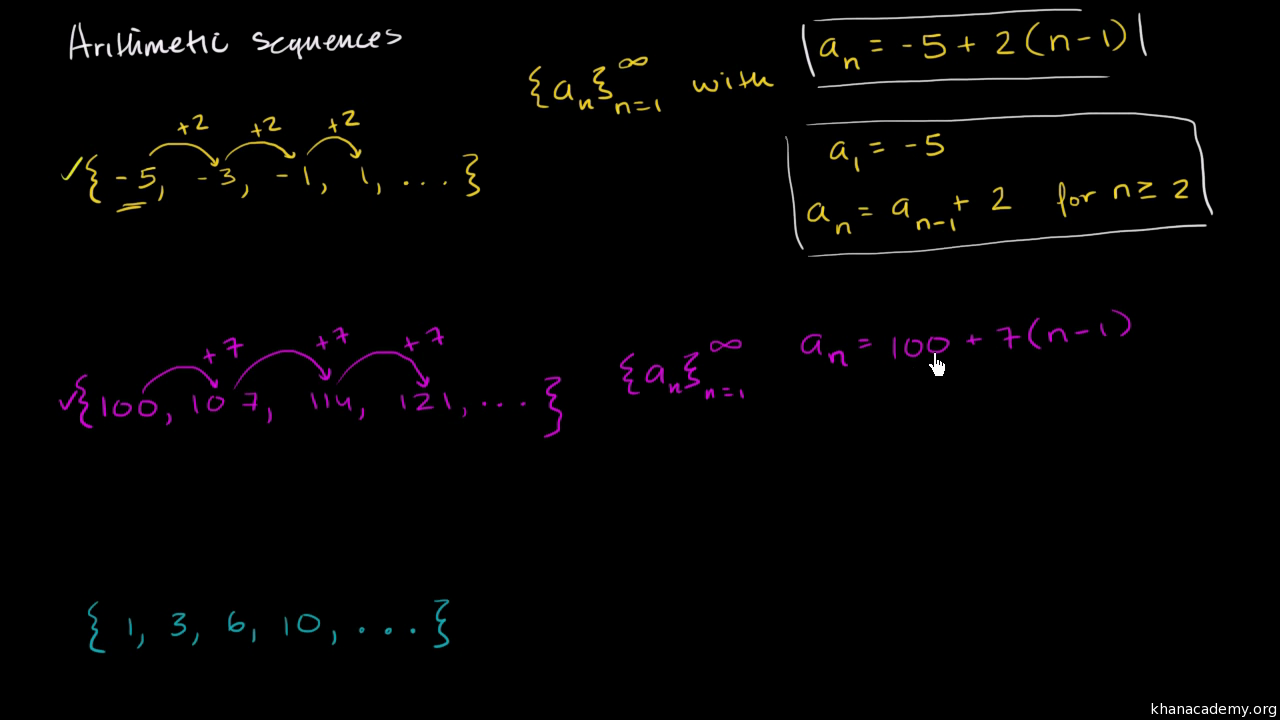 Arithmetic sequences
{a_n}_{n=1}^∞ with a_n = -5 + 2(n-1)
a_1 = -5
a_n = a_{n-1} + 2 for n ≥ 2
+2 +2 +2
✓{-5, -3, -1, 1, ...}
+7 +7 +7
✓{100, 107, 114, 121, ...} {a_n}_{n=1}^∞ a_n = 100 + 7(n-1)
{1, 3, 6, 10, ...}
khanacademy.org